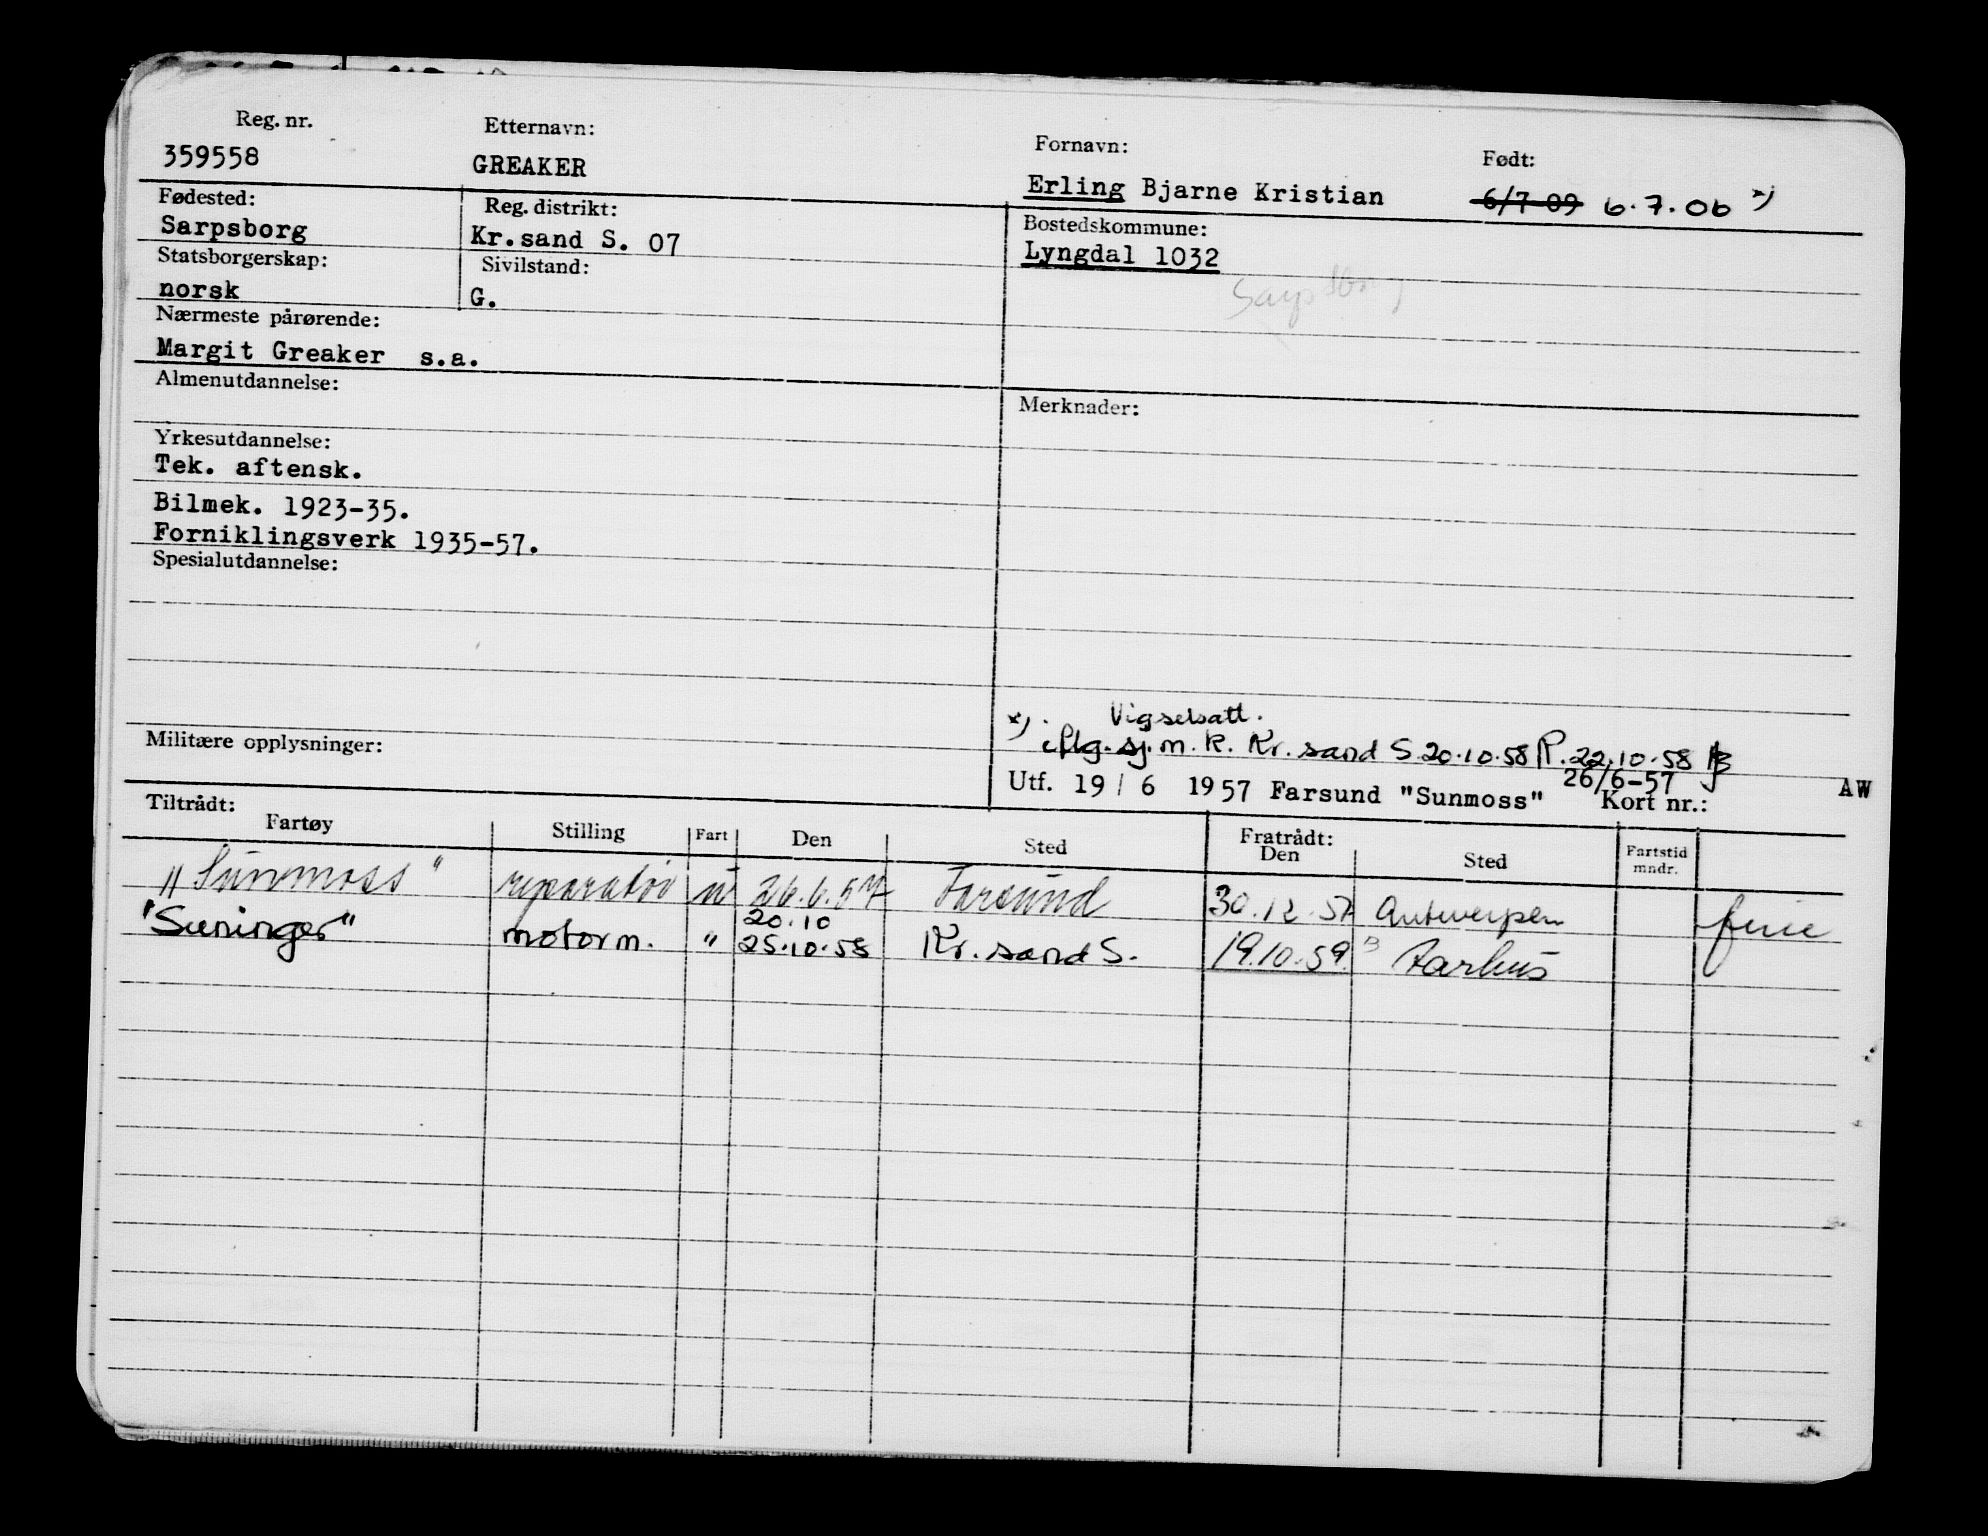 Reg. nr. Etternavn: Fornavn: Født:
359558 GREAKER Erling Bjarne Kristian 6/7-09 6.7.06 *)
Fødested: Reg. distrikt: Bostedskommune:
Sarpsborg Kr.sand S. 07 Lyngdal 1032
Statsborgerskap: Sivilstand: Sarpsborg
norsk G.
Nærmeste pårørende:
Margit Greaker s.a.
Almenutdannelse: Merknader:
Yrkesutdannelse:
Tek. aftensk.
Bilmek. 1923-35.
Forniklingsverk 1935-57.
Spesialutdannelse:
*) Vigselsatt.
Militære opplysninger: iflg. sj. m. k. Kr. sand S. 20.10.58 R. 22.10.58
26/6-57
Utf. 19 / 6 1957 Farsund "Sunmoss" Kort nr.: AW
Tiltrådt: Fratrådt:
Fartøy Stilling Fart Den Sted Den Sted Fartstid mndr.
"Sunmoss" reparatør u 26.6.57 Farsund 30.12.57 Antwerpen ferie
20.10
"Suninger" motorm. " 25.10.58 Kr. sand S. 19.10.59. Aarhus